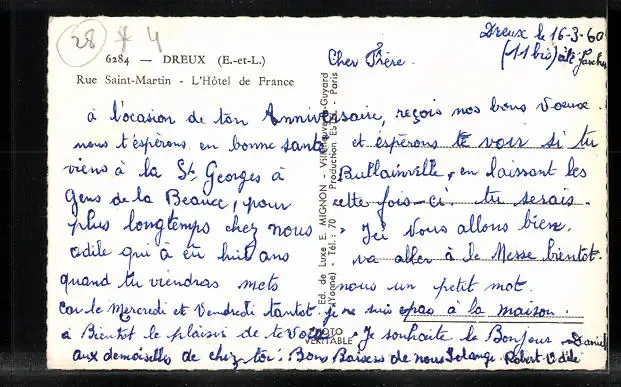 28 * 4
Dreux le 16-3-60
(11 bis) cité
6284 — DREUX (E.-et-L.)
Rue Saint-Martin - L'Hôtel de France
Cher Frère.
à l'occasion de ton Anniversaire, reçois nos bons Voeux.
nous t'espérons en bonne santé et espérons te voir si tu
viens à la St Georges à Bullainville, en laissant les
Gens de la Beauce, pour cette fois-ci. tu serais
plus longtemps chez nous. Ici Vous allons bien.
odile qui a eu huit ans va aller à la Messe bientot.
quand tu viendras mets nous un petit mot.
car le Mercredi et Vendredi tantot je ne suis pas à la maison.
a Bientot le plaisir de te Voir. Je souhaite le Bonjour
aux demoiselles de chez toi. Bons Baisers de nous Solange Robert Odile
Daniel
Ed. de Luxe E. MIGNON - Villeneuve-la-Guyard
(Yonne) - Tél. : 70 Production Paris
PHOTO
VÉRITABLE